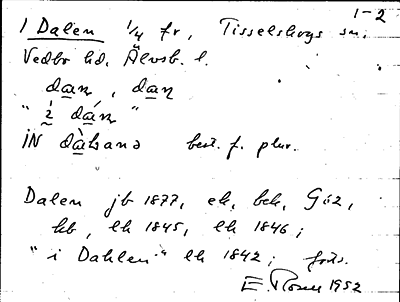 1-2
1 Dalen 1/4 fr, Tisselskogs sn.
Vedbo hd. Älvsb. l.
daɳ, daɳ
" i daɳ "
IN dàƚəna best. f. plur.
Dalen jb 1877, ek, bek, Göz,
hb, lk 1845, lk 1846;
"i Dahlen" lk 1842;
E. Rosen 1952